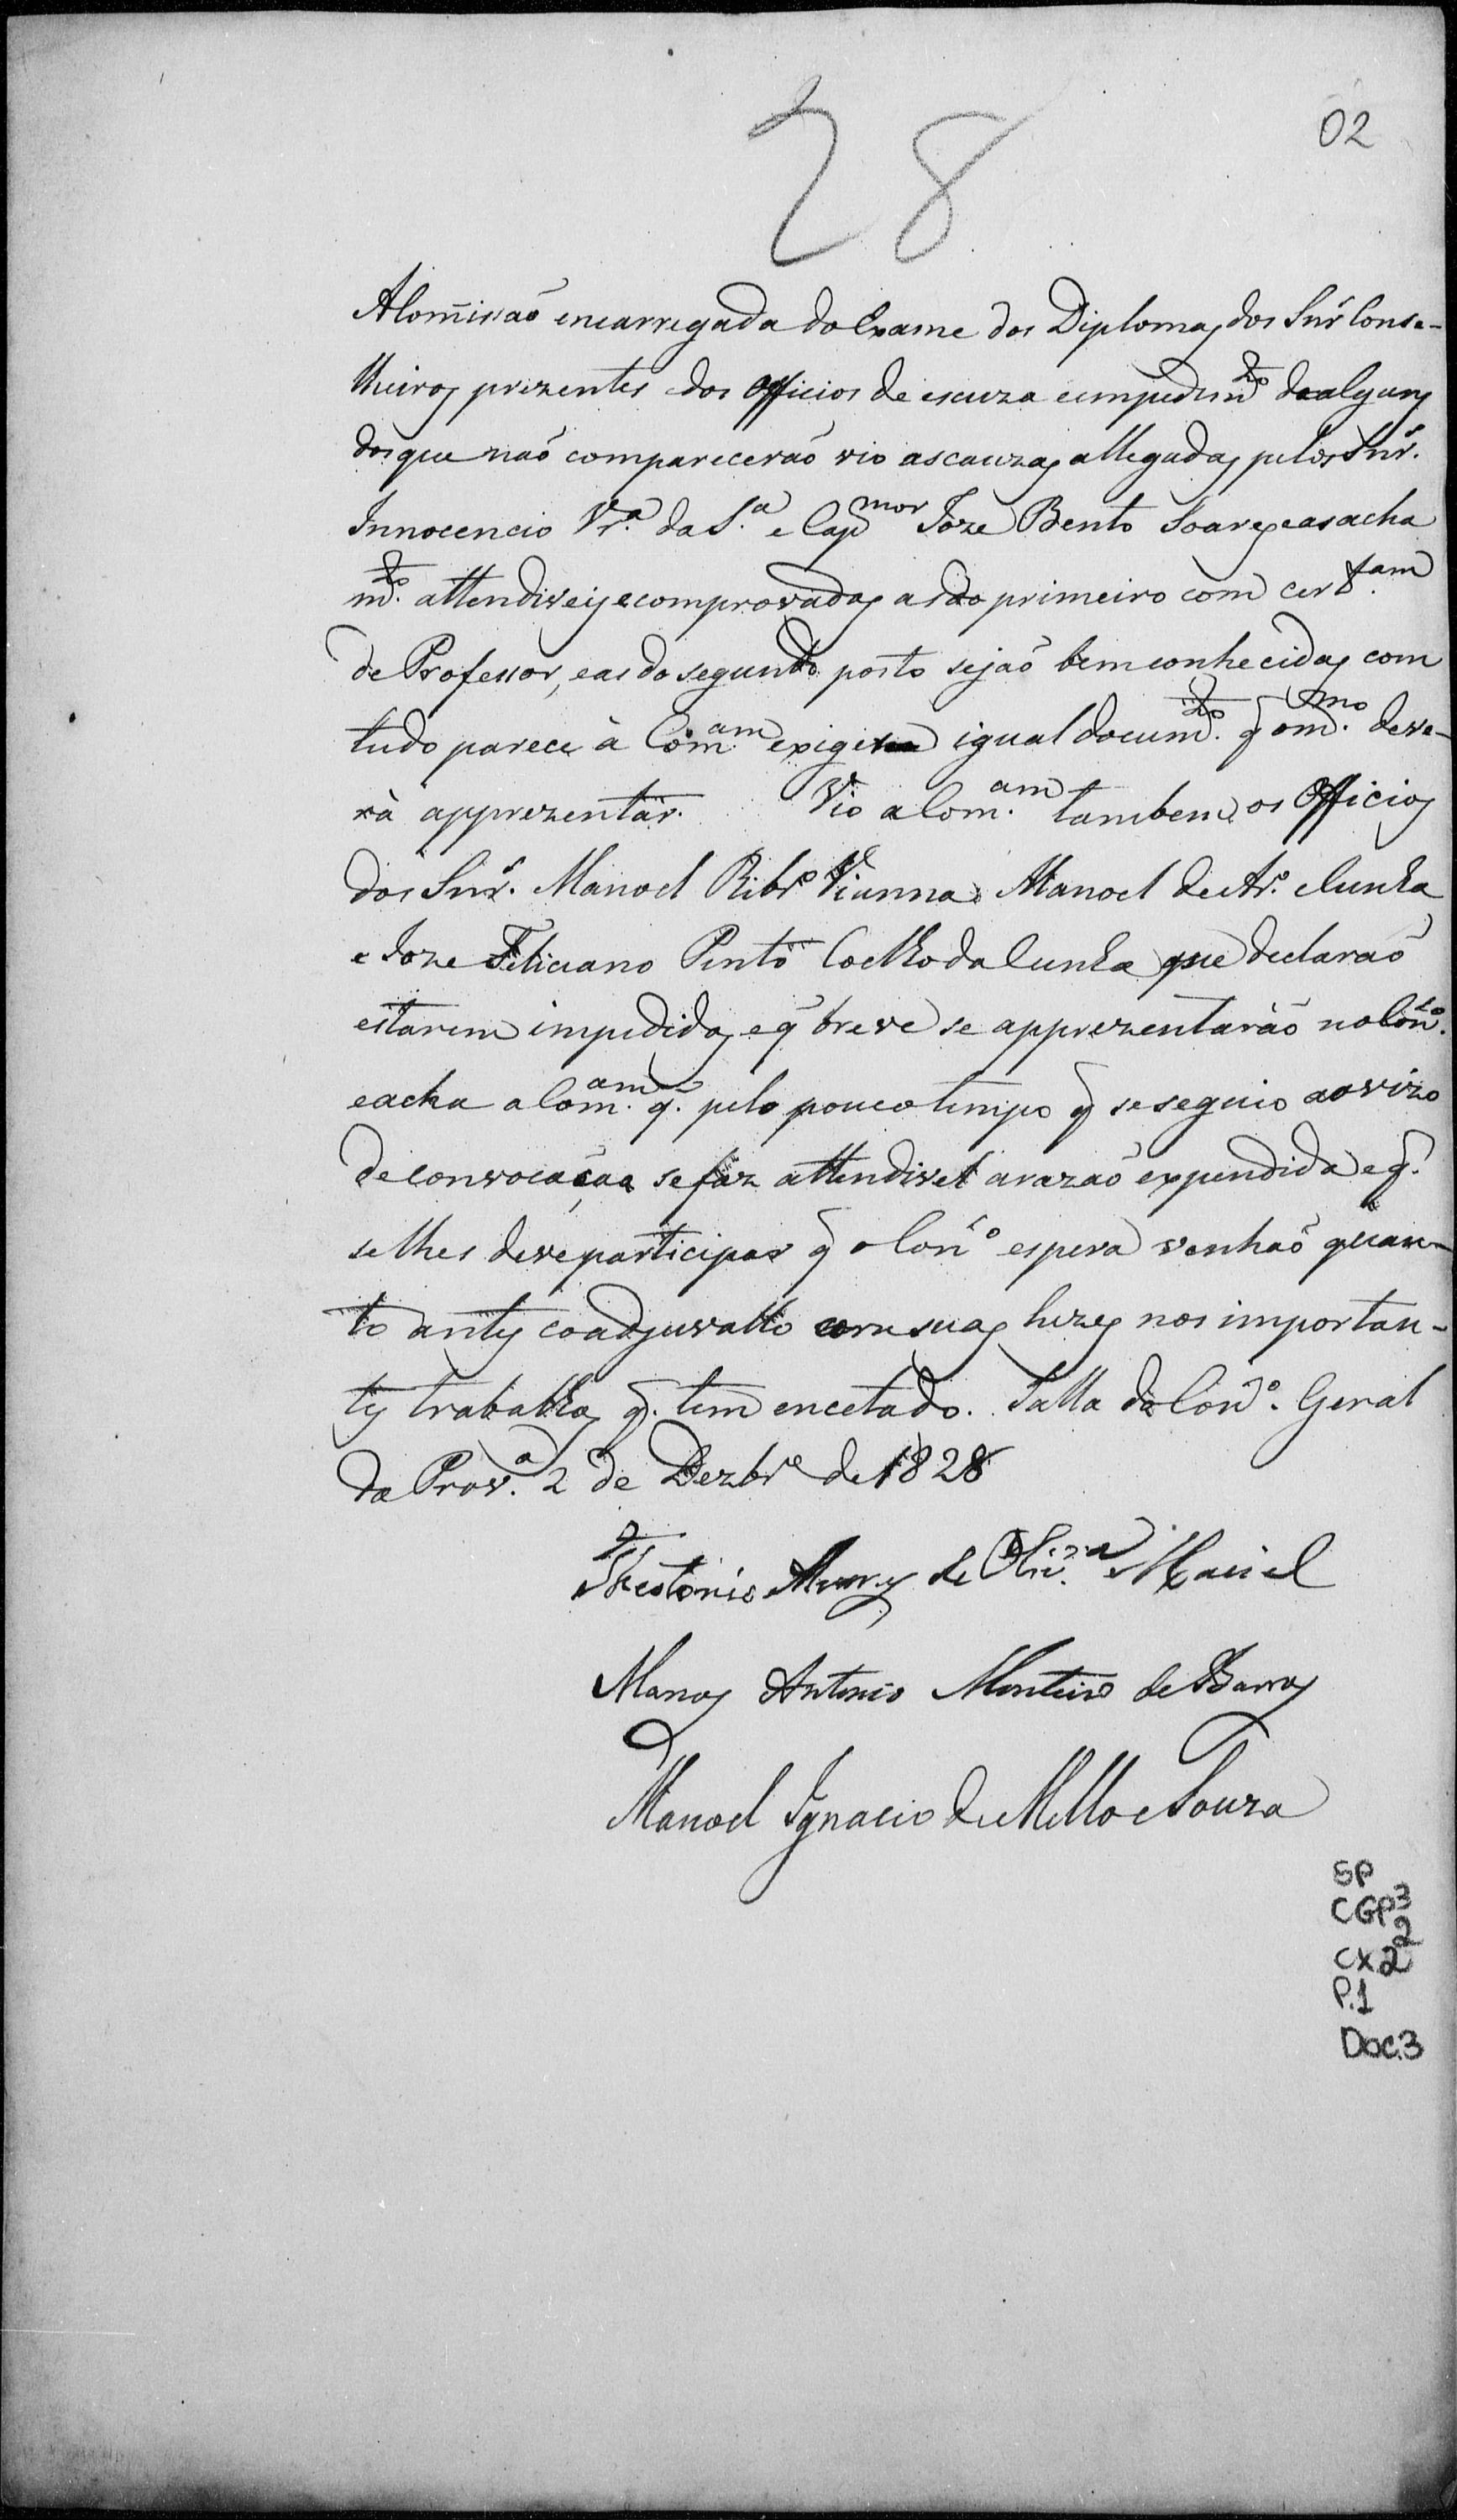 28
02
A Com̃issaõ encarregada do Exame dos Diplomas dos Snr̃s Conse-
lheiros prezentes dos Officios de escuza e impedim.to de alguns
dos que naõ comparecerão vio as cauzas allegadas pelos Snr̃s.
Innocencio Vr.ª da S.ª e Cap mor Joze Bento Soares e as acha
m.to attendiveis e comprovadas as do primeiro com cert.am
de Professor, e as do segundo posto sejaõ bem conhecidas com
tudo parece à Com.am exigir igual docum.to q̃ o m.mo deve-
rà apprezentar. Vio a Com.am tambem os Officios
dos Snr̃s. Manoel Ribr.º Vianna Manoel de Ar.º Cunha
e Joze Feliciano Pinto Coelho da Cunha que declaraõ
estarem impedidos, e q̃ breve se apprezentaràõ no Con.º
e acha a Com.am q̃. pelo pouco tempo q̃ se seguio ao avizo
de convocaçaõ se faz attendivel a razaõ expendida e q̃.
se lhes deve participar q̃ o Con.º espera venhaõ quan-
to antes coadjuvallo com suas luzes nos importan-
tes trabalhos q̃. tem encetado. Salla do Con.º Geral
da Prov.ª 2 de Dezbr.e de 1828
Theotonio Alvares de Oliv.ra Maciel
Marcos Antonio Monteiro de Barros
Manoel Ignacio de Mello e Souza
SP
CGP3
2
CX.2
P.1
Doc.3